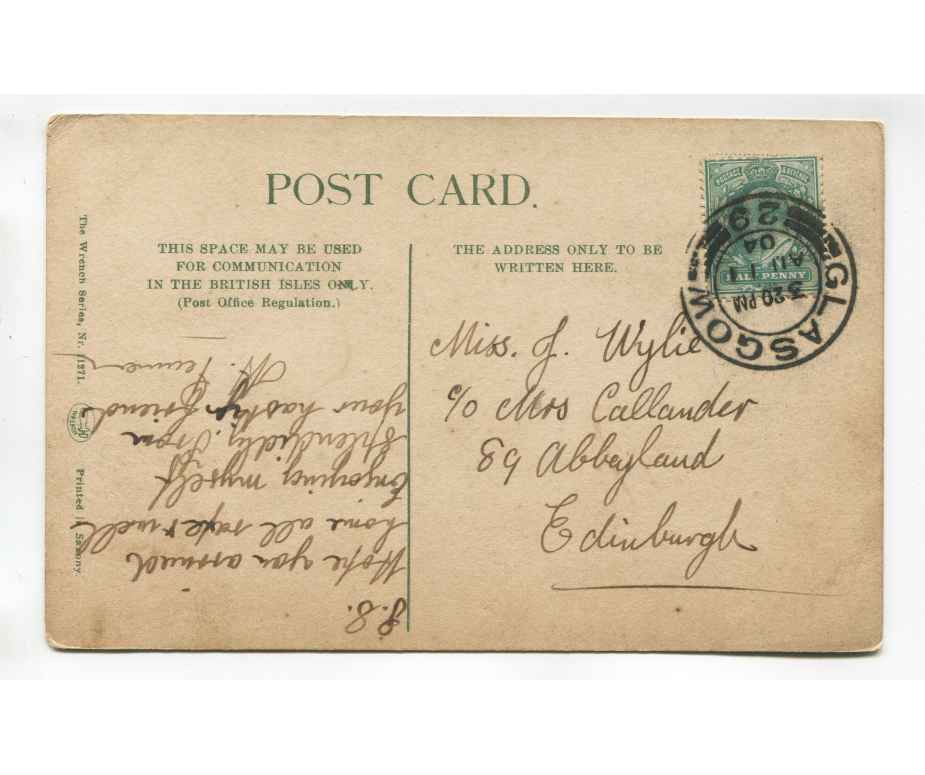 POST CARD.
THIS SPACE MAY BE USED
FOR COMMUNICATION
IN THE BRITISH ISLES ONLY.
(Post Office Regulation.)
THE ADDRESS ONLY TO BE
WRITTEN HERE.
POSTAGE & REVENUE
HALF PENNY
GLASGOW
3 20 PM
AU 1
04
29
Miss. J. Wylie
c/o Mrs Callander
89 Abbeyland
Edinburgh
Hope you arrived
home all safe & well
Enjoying myself
splendidly. From
your hasty friend
The Wrench Series, Nr. 11271.
WRENCH
Printed in Saxony.